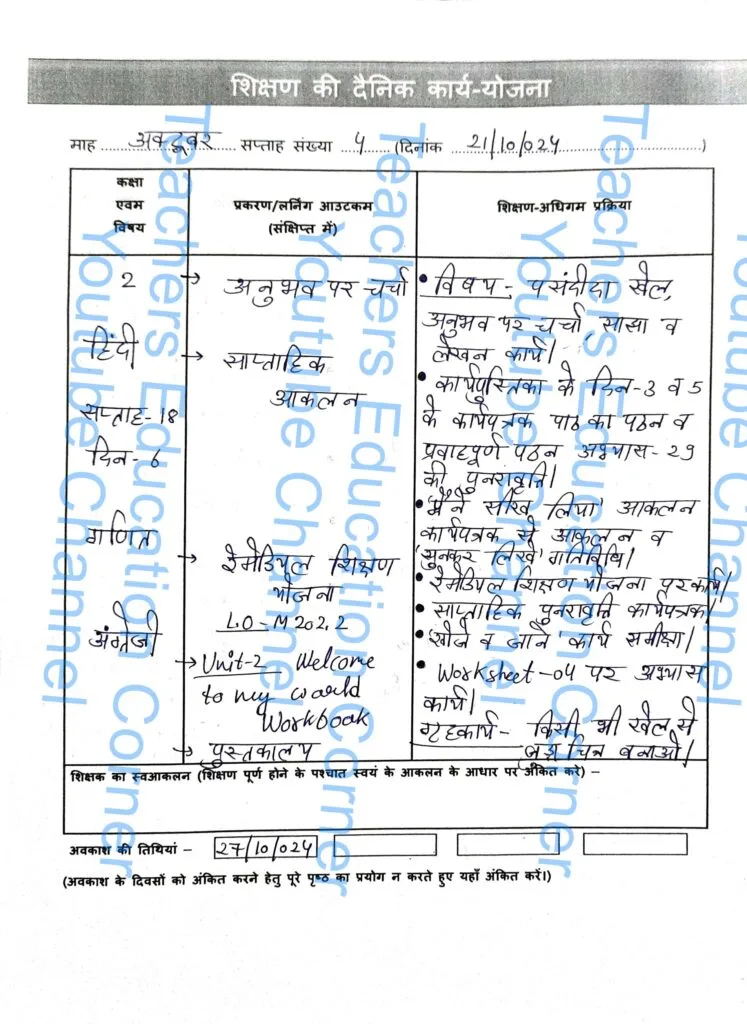 शिक्षण की दैनिक कार्य-योजना
माह अक्टूबर सप्ताह संख्या 4 (दिनांक 21/10/024)
कक्षा
एवम
विषय
प्रकरण/लर्निंग आउटकम
(संक्षिप्त में)
शिक्षण-अधिगम प्रक्रिया
2
हिंदी
सप्ताह-18
दिन-6
गणित
अंग्रेजी
→ अनुभव पर चर्चा
→ साप्ताहिक
आकलन
→ रेमेडियल शिक्षण
योजना
L.O-M202.2
→ Unit-2 Welcome
to my world
Workbook
→ पुस्तकालय
• विषय- पसंदीदा खेल,
अनुभव पर चर्चा, साझा व
लेखन कार्य।
• कार्यपुस्तिका के दिन-3 व 5
के कार्यपत्रक पाठ का पठन व
प्रवाहपूर्ण पठन अभ्यास-29
की पुनरावृत्ति।
• 'मैंने सीख लिया' आकलन
कार्यपत्रक से आकलन व
'सुनकर लिखे' गतिविधि।
• रेमेडियल शिक्षण योजना पर कार्य।
• साप्ताहिक पुनरावृत्ति कार्यपत्रक।
• 'खोजे व जाने' कार्य समीक्षा।
• Worksheet-04 पर अभ्यास
कार्य।
गृहकार्य- किसी भी खेल से
जुड़ा चित्र बनाओ।
शिक्षक का स्वआकलन (शिक्षण पूर्ण होने के पश्चात स्वयं के आकलन के आधार पर अंकित करे) –
अवकाश की तिथियां – 27/10/024
(अवकाश के दिवसों को अंकित करने हेतु पूरे पृष्ठ का प्रयोग न करते हुए यहाँ अंकित करें।)
Teachers Education Corner
Youtube Channel
Teachers Education Corner
Youtube Channel
Teachers Education Corner
Youtube Channel